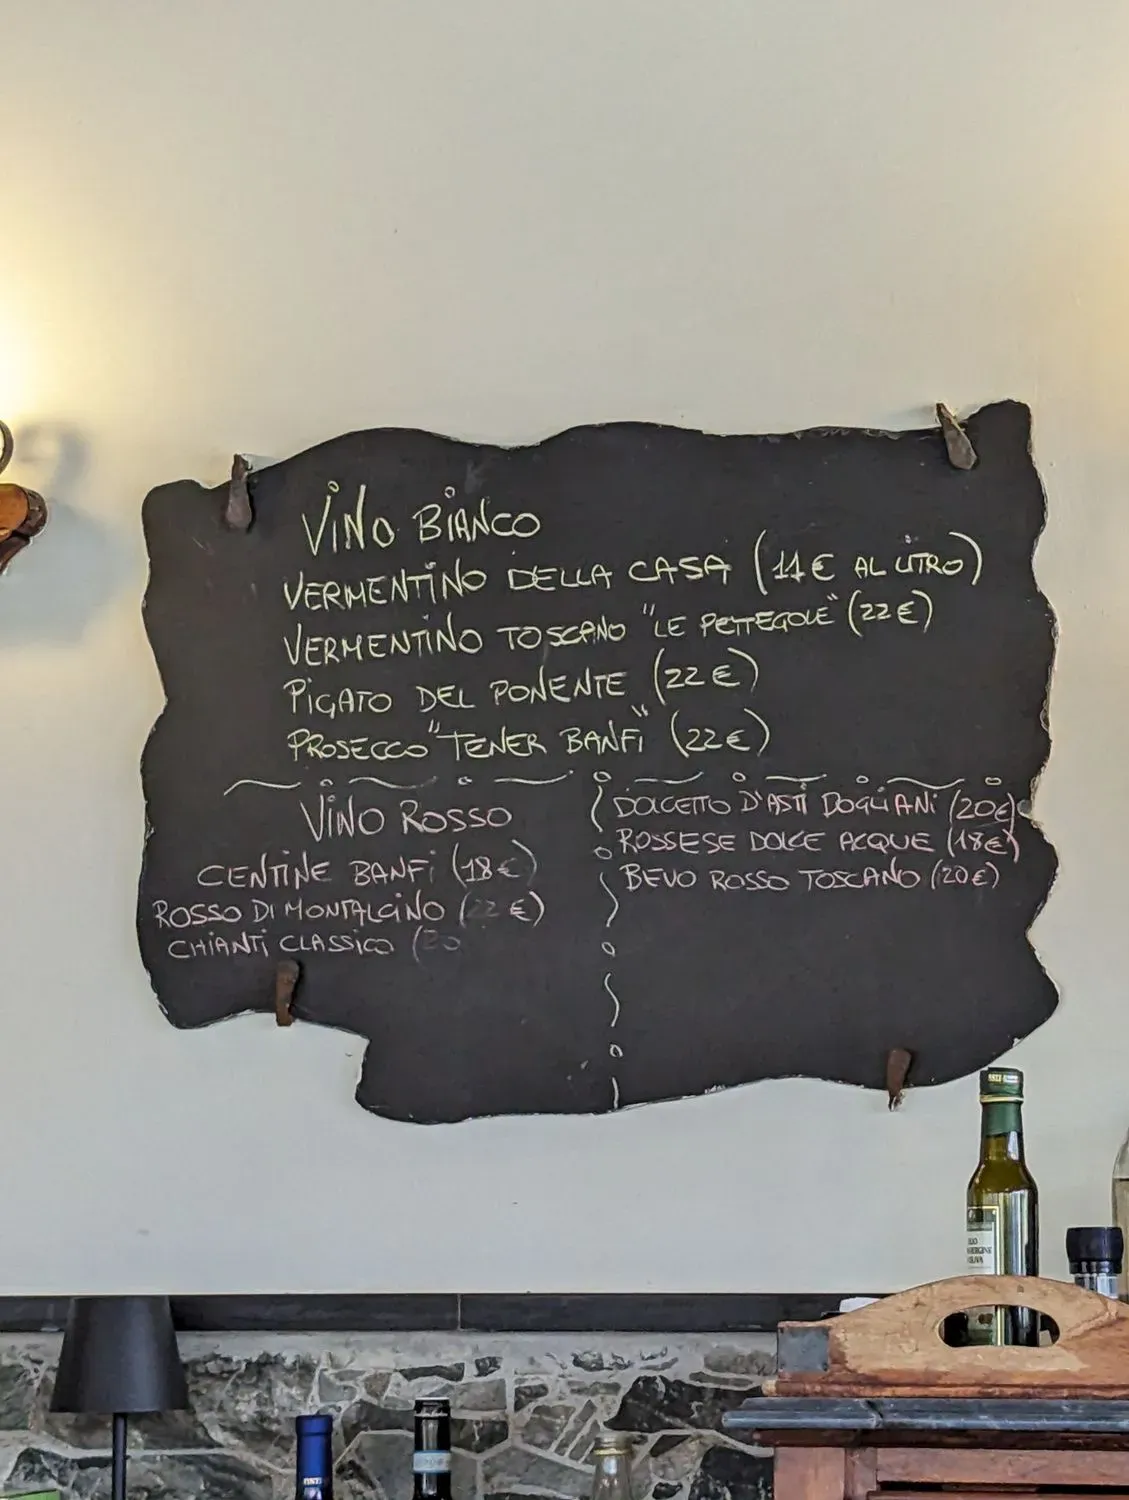 VINO BIANCO
VERMENTINO DELLA CASA (11€ AL LITRO)
VERMENTINO TOSCANO "LE PETTEGOLE" (22€)
PIGATO DEL PONENTE (22€)
PROSECCO "TENER BANFI" (22€)
VINO ROSSO
CENTINE BANFI (18€)
ROSSO DI MONTALCINO (22€)
CHIANTI CLASSICO (20
DOLCETTO D'ASTI DOGLIANI (20€)
ROSSESE DOLCE ACQUE (18€)
BEVO ROSSO TOSCANO (20€)